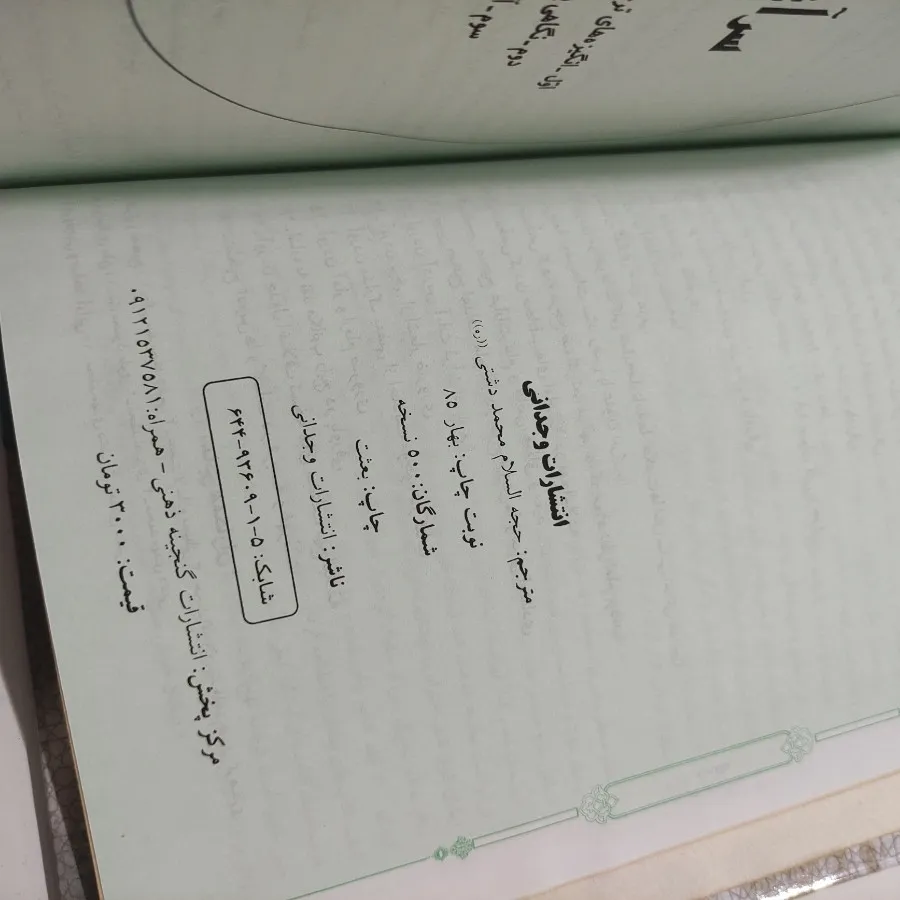 اول-انگیزه‌های
دوم-نگاهی
سوم-
انتشارات وجدانی
مترجم: حجه السلام محمد دشتی ((ره))
نوبت چاپ: بهار ۸۵
شمارگان: ۵۰۰ نسخه
چاپ: بعثت
ناشر: انتشارات وجدانی
شابک: ۵-۱-۹۲۶۰۹-۶۴۴
مرکز پخش: انتشارات گنجینه ذهنی - همراه: ۰۹۱۲۱۵۳۷۵۸۱
قیمت: ۳۰۰۰ تومان